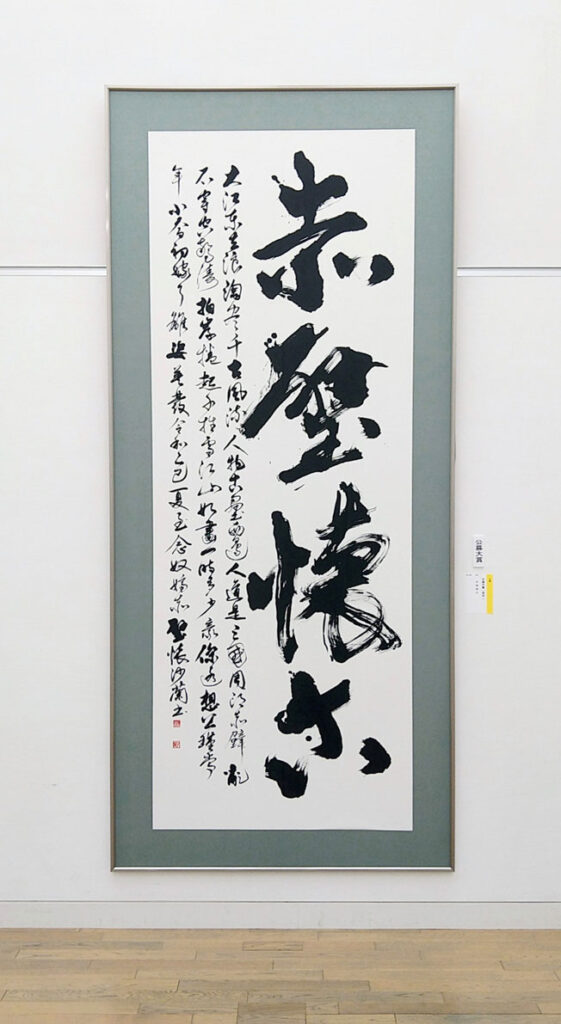 赤壁懷古
大江東去浪淘盡千古風流人物古壘西邊人道是三國周郎赤壁亂
石穿空驚濤拍岸捲起千堆雪江山如畫一時多少豪傑遙想公瑾當
年小喬初嫁了雄姿英發令和乙巳夏至念奴嬌赤壁懷沙蘭書
公募大賞